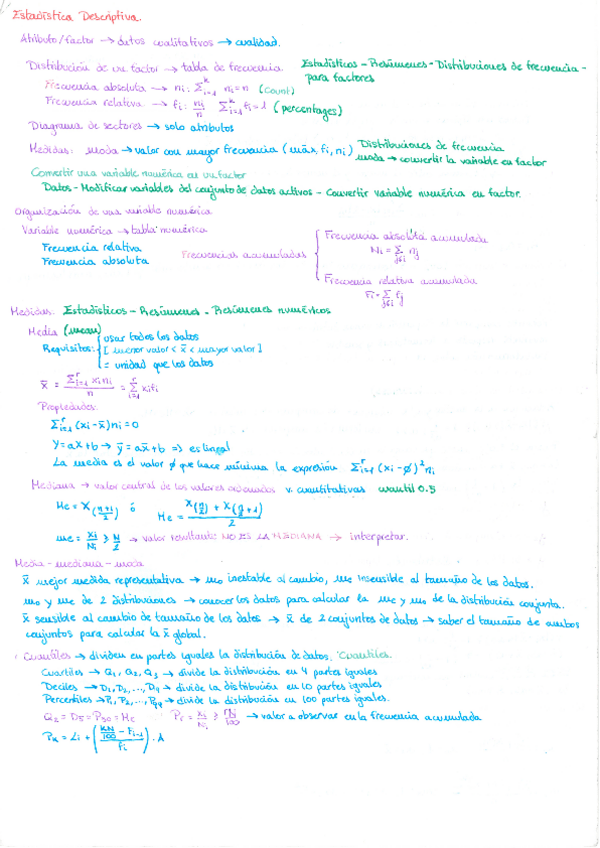 Estadística Descriptiva.
Atributo/factor → datos cualitativos → cualidad.
Distribución de un factor → tabla de frecuencia Estadísticos - Resúmenes - Distribuciones de frecuencia - para factores
Frecuencia absoluta → nᵢ: Σᵏᵢ₌₁ nᵢ = n (count)
Frecuencia relativa → fᵢ: nᵢ/n Σᵏᵢ₌₁ fᵢ = 1 (percentages)
Diagrama de sectores → solo atributos
Medidas: moda → valor con mayor frecuencia (máx, fᵢ, nᵢ) Distribuciones de frecuencia
moda → convertir la variable en factor
Convertir una variable numérica en un factor
Datos - Modificar variables del conjunto de datos activos - Convertir variable numérica en factor.
Organización de una variable numérica
Variable numérica → tabla numérica
Frecuencia relativa
Frecuencia absoluta
Frecuencias acumuladas
Frecuencia absoluta acumulada
Nᵢ = Σ j≤i nⱼ
Frecuencia relativa acumulada
Fᵢ = Σ j≤i fⱼ
Medidas: Estadísticos - Resúmenes - Resúmenes numéricos
Media (mean)
Requisitos:
usar todos los datos
[menor valor < x̄ < mayor valor]
= unidad que los datos
x̄ = Σʳᵢ₌₁ xᵢnᵢ / n = Σʳᵢ₌₁ xᵢfᵢ
Propiedades:
Σʳᵢ₌₁ (xᵢ - x̄)nᵢ = 0
y = ax + b → ȳ = ax̄ + b => es lineal
La media es el valor ø que hace mínima la expresión Σʳᵢ₌₁ (xᵢ - ø)²nᵢ
Mediana → valor central de los valores ordenados v. cuantitativas cuantil 0.5
Me = X((n+1)/2) ó Me = (X(n/2) + X(n/2+1))/2
me = xᵢ/Nᵢ ≥ N/2 → valor resultante NO ES LA MEDIANA → interpretar.
Media - mediana - moda
x̄ mejor medida representativa → mo inestable al cambio, me insensible al tamaño de los datos.
mo y me de 2 distribuciones → conocer los datos para calcular la me y mo de la distribución conjunta.
x̄ sensible al cambio de tamaño de los datos → x̄ de 2 conjuntos de datos → saber el tamaño de ambos
conjuntos para calcular la x̄ global.
Cuantiles → dividen en partes iguales la distribución de datos. Cuantiles.
Cuartiles → Q₁, Q₂, Q₃ → divide la distribución en 4 partes iguales
Deciles → D₁, D₂, ..., D₉ → divide la distribución en 10 partes iguales
Percentiles → P₁, P₂, ..., P₉₉ → divide la distribución en 100 partes iguales.
Q₂ = D₅ = P₅₀ = Me Pᵣ = xᵢ/Nᵢ ≥ rN/100 → valor a observar en la frecuencia acumulada
Pₖ = Lᵢ + ((KN/100 - Fᵢ₋₁)/fᵢ) · A